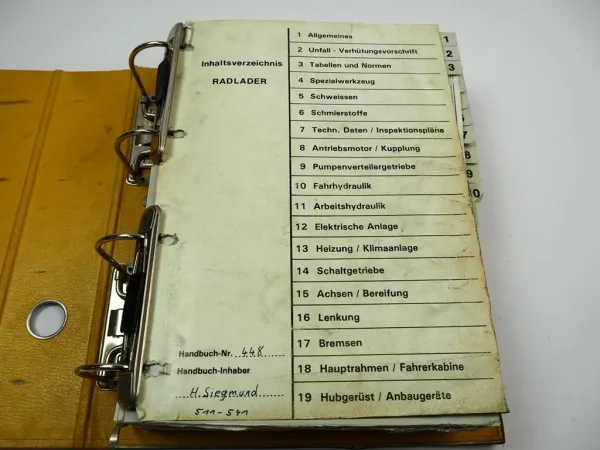 Inhaltsverzeichnis
RADLADER
1 Allgemeines
2 Unfall - Verhütungsvorschrift
3 Tabellen und Normen
4 Spezialwerkzeug
5 Schweissen
6 Schmierstoffe
7 Techn. Daten / Inspektionspläne
8 Antriebsmotor / Kupplung
9 Pumpenverteilergetriebe
10 Fahrhydraulik
11 Arbeitshydraulik
12 Elektrische Anlage
13 Heizung / Klimaanlage
14 Schaltgetriebe
15 Achsen / Bereifung
16 Lenkung
17 Bremsen
18 Hauptrahmen / Fahrerkabine
19 Hubgerüst / Anbaugeräte
Handbuch-Nr. 448
Handbuch-Inhaber
H. Siegmund
511-541
1
2
3
8
9